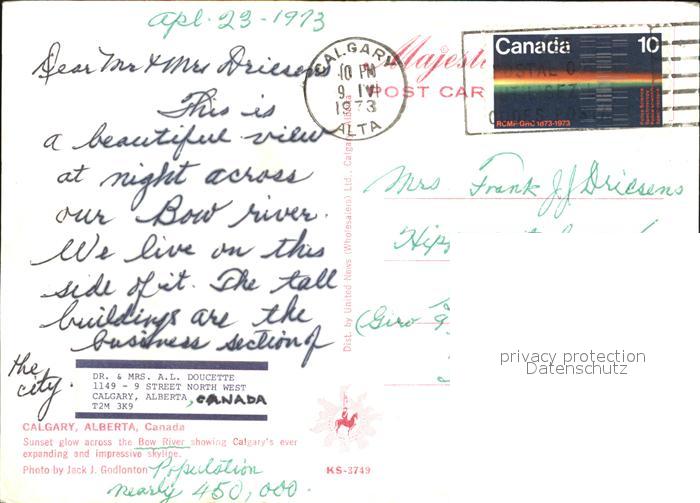 Apl. 23-1973
Dear Mr & Mrs Driesens
This is
a beautiful view
at night across
our Bow river.
We live on this
side of it. The tall
buildings are the
business section of
the
city.
DR. & MRS. A.L. DOUCETTE
1149 - 9 STREET NORTH WEST
CALGARY, ALBERTA, CANADA
T2M 3K9
CALGARY, ALBERTA, Canada
Sunset glow across the Bow River showing Calgary's ever
expanding and impressive skyline.
Photo by Jack J. Godlonton
Population
nearly 450,000.
Dist. by United News (Wholesalers) Ltd., Calgary, Alberta
KS-3749
CALGARY
10 PM
9 IV
1973
ALTA
Majesti
POST CAR
Canada 10
RCMP-GRC 1873-1973
Mrs. Frank J.J Driesens
(Giro
privacy protection
Datenschutz